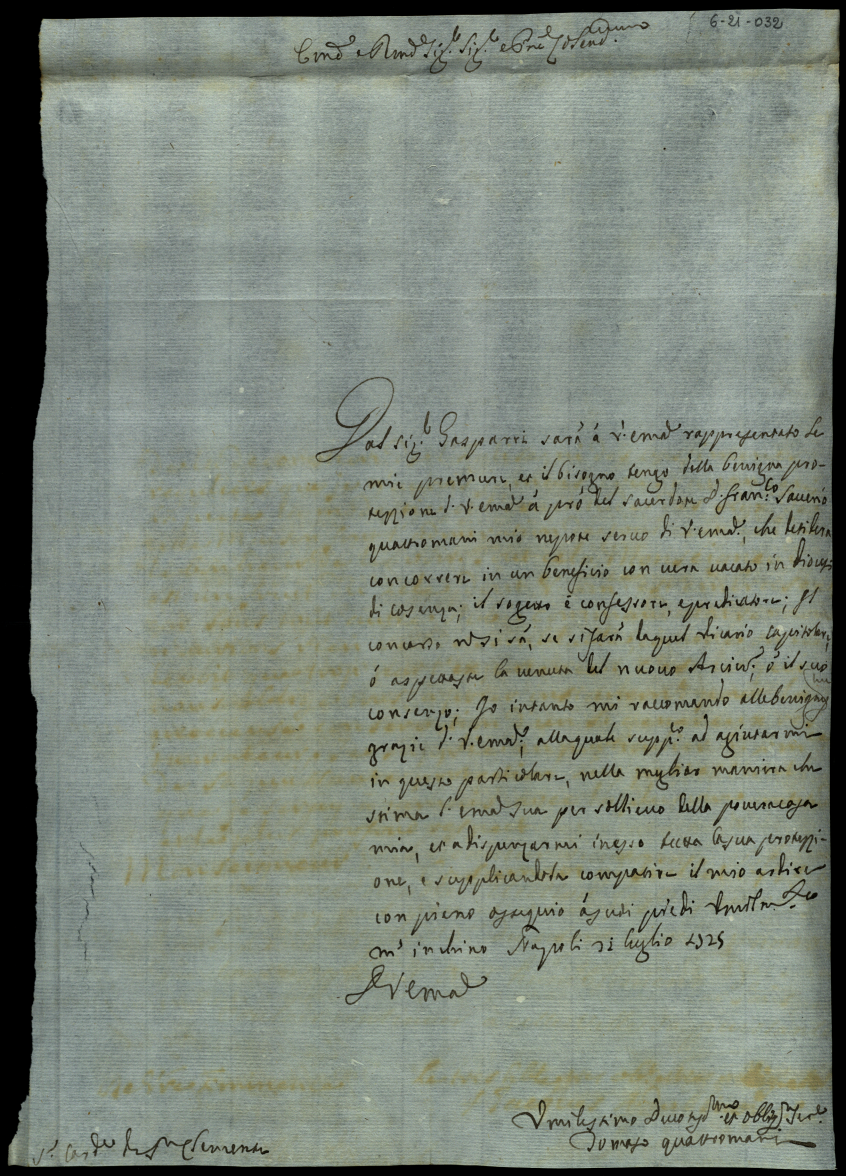 6-21-032
Em.º e Rmo Sig.r Sig.r e Pne Col.mo
Dal sig.r Gasparri sarà à V. em.a rappresentato le
mie premure, et il bisogno tengo della benigna pro-
tezzione d. V. em.a à prò del sacerdote D. Fran.co Saverio
quattromani mio nepote servo di V. em.a, che desidera
concorrere in un beneficio con cura vacato in diocesi
di cosenza; il sogetto è confessore, e predicatore; Il
concorso non si sà, se si farà da quel vicario capitolare,
ò aspettasse la venuta del nuovo Arciv.o, ò il suo
consenzo; Io intanto mi raccomando alle benigne
grazie d. V. em.a, alla quale supp.co ad agiutarmi
in questo particolare, nella meglior maniera che
stima l' em.a Sua per sollievo della povera casa
mia, et a dispenzarmi in esso tutta la sua protezzi-
one, e supplicandola compatire il mio ardire
con pieno ossequio à suoi piedi
m' inchino Napoli luglio 1725
D V em.a
Umilissimo Devotis.mo et oblig.mo Ser.e
Tomaso quattromani
S.r Card.le di S. Clemente